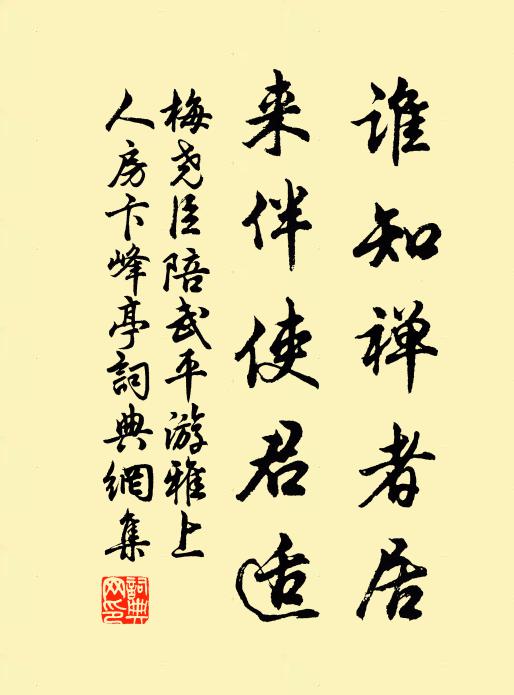 谁知禅者居
来伴使君适
梅尧臣陪武平游雅上
人房卞峰亭詞典網集
詞典網印